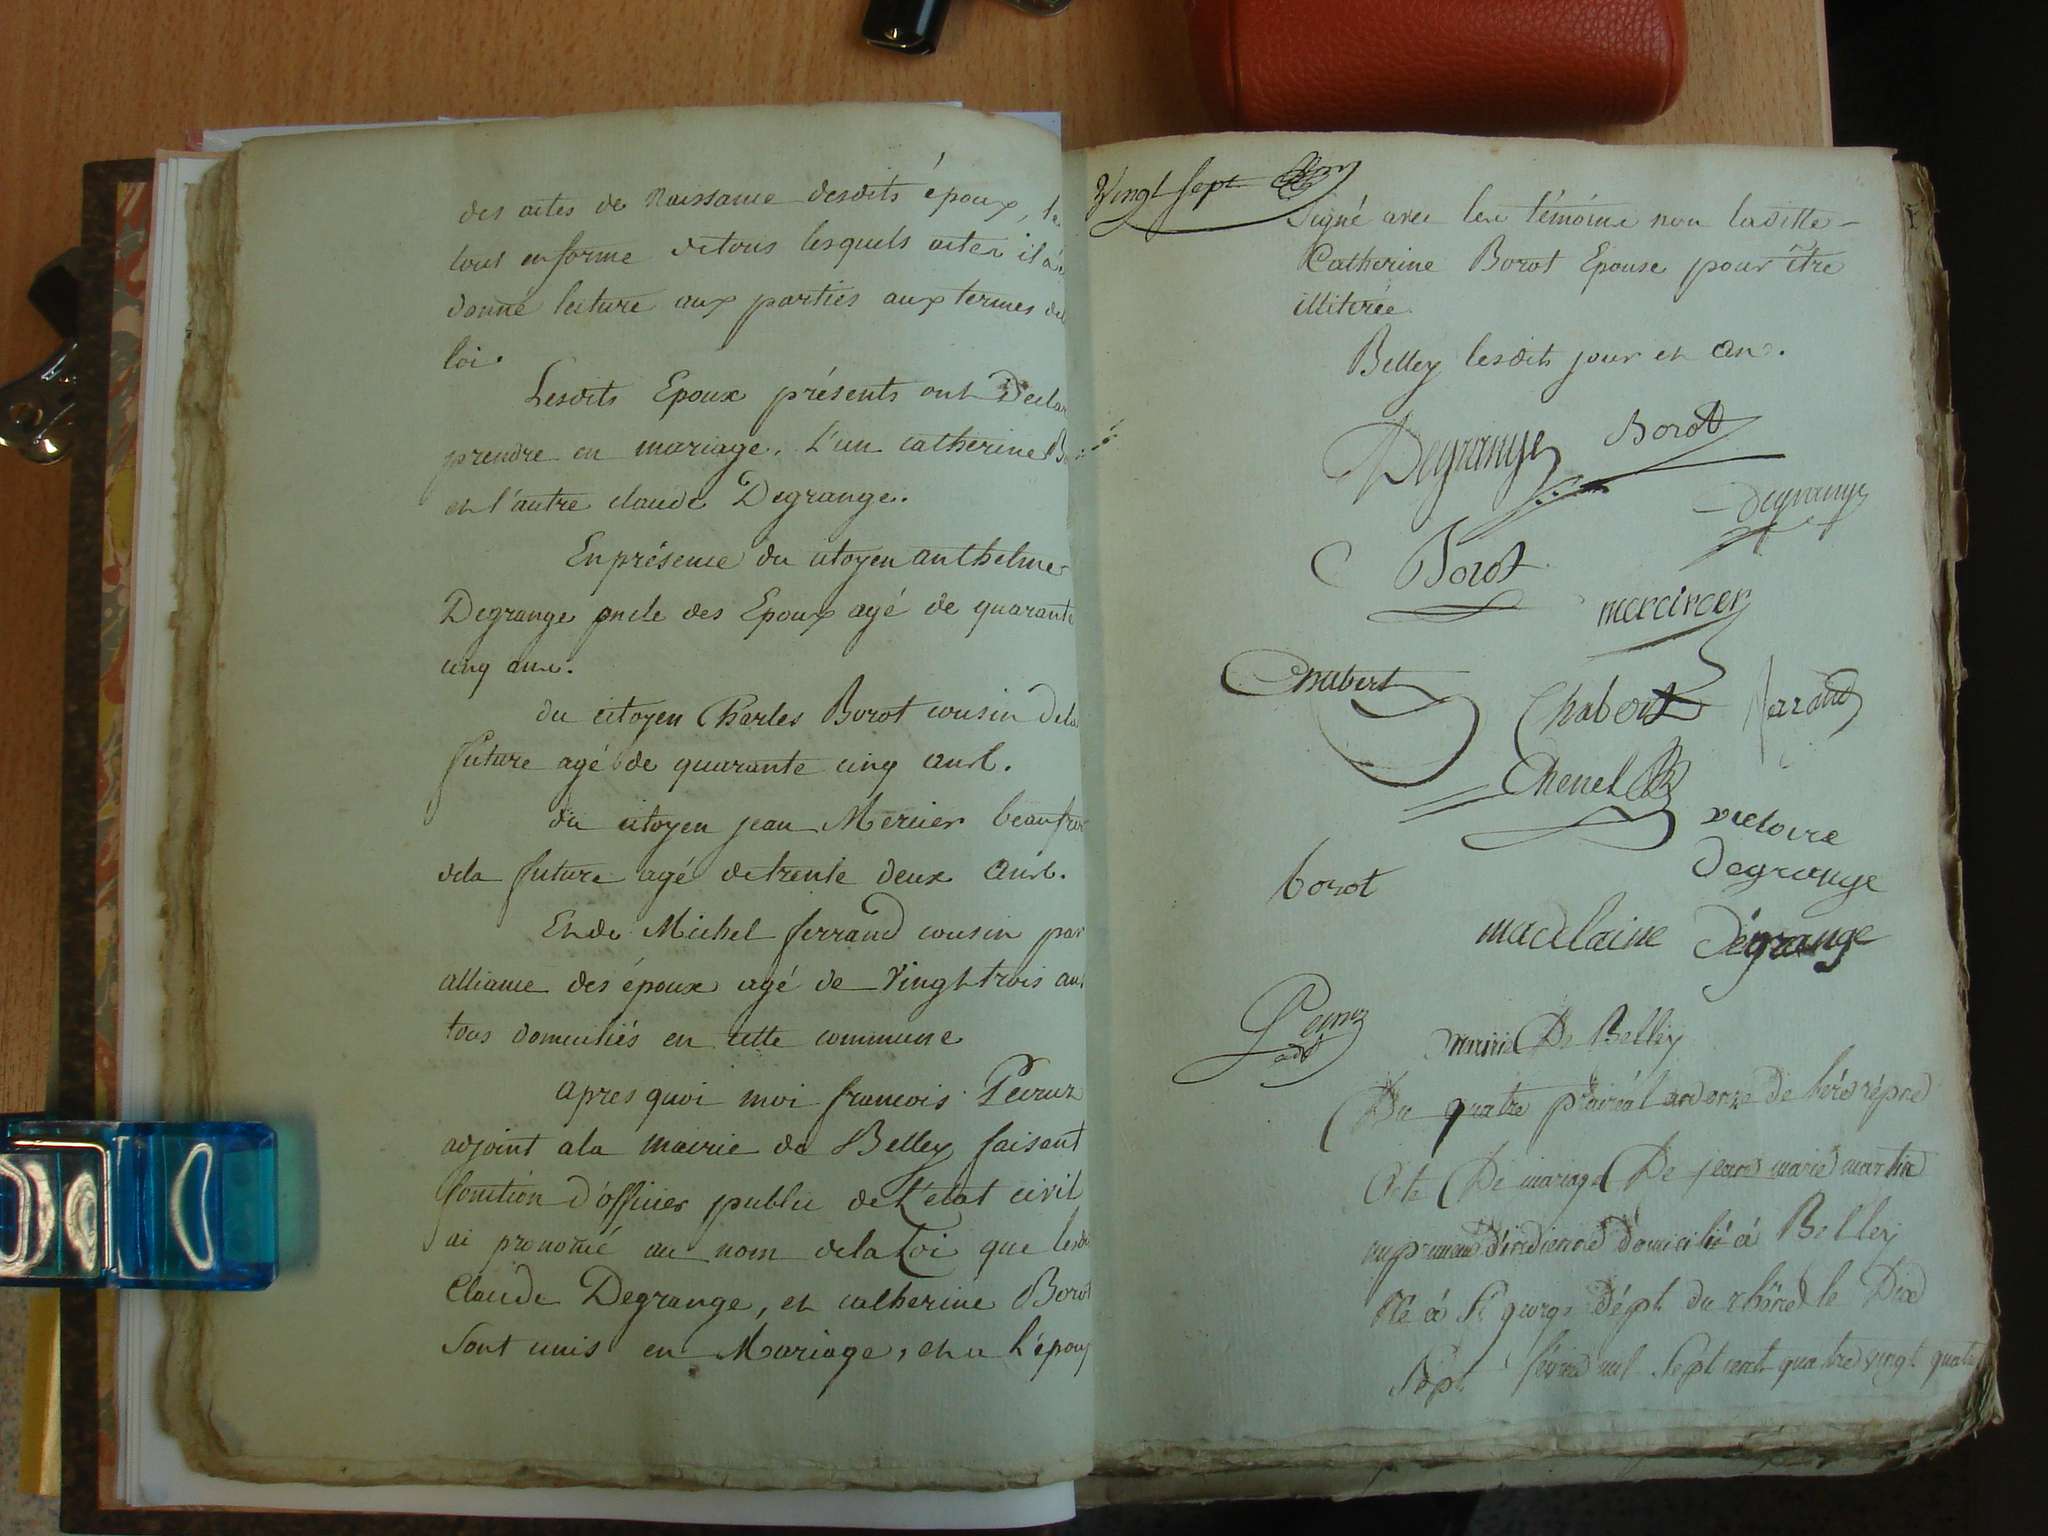 des actes de Naissance desdits époux, le
tout en forme de tous lesquels actes il a
donné lecture aux parties aux termes de
loi.
Lesdits Epoux présents ont Declar
prendre en mariage, L'un catherine Bo
et l'autre claude Degrange.
En présence du citoyen anthelme
Degrange oncle des Epoux agé de quarante
cinq ans.
du citoyen Charles Borot cousin dela
future agé de quarante cinq ans.
du citoyen jean Mercier beaufrer
dela future agé de trente deux ans.
Et de Michel ferrand cousin par
alliance des époux agé de Vingt trois ans
tous domiciliés en cette commune
apres quoi moi francois Peiruz
adjoint ala mairie de Belley faisant
fonction d'officier public de L'etat civil
ai prononcé au nom dela Loi que lesd
Claude Degrange, et catherine Borot
Sont unis en Mariage, et a L'époux
Vingt sept
Signé avec les témoins non laditte
Catherine Borot Epouse pour être
illiterée.
Belley lesdits jour et an.
Degrange Borot
Degrange
C Borot
mercier
Chabert
Chabert ferrand
Chenel
victoire
Degrange
borot
madelaine Degrange
mairie De Belley
Du quatre prairéal an onze de
Acte De mariage De jean marie martin
d'indienne domicilié à Belley
Né à St george dépt. du rhône le Dix
Sept sept cent quatre vingt quatre